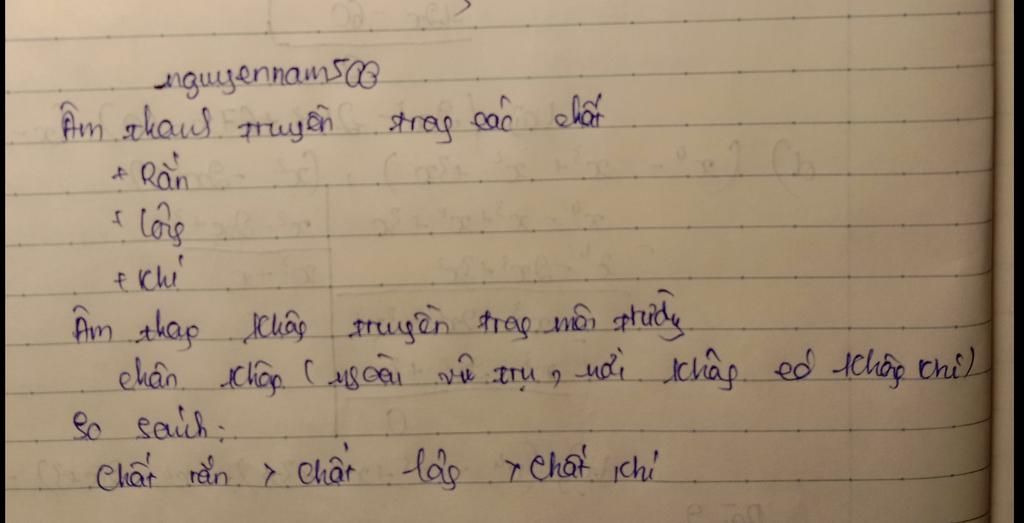 nguyennam500
Âm thanh truyền trong các chất
+ Rắn
+ lỏng
+ Khí
Âm thanh không truyền trong môi trường
chân không (ngoài vũ trụ, nơi không có không khí)
So sánh:
Chất rắn > Chất lỏng > Chất khí